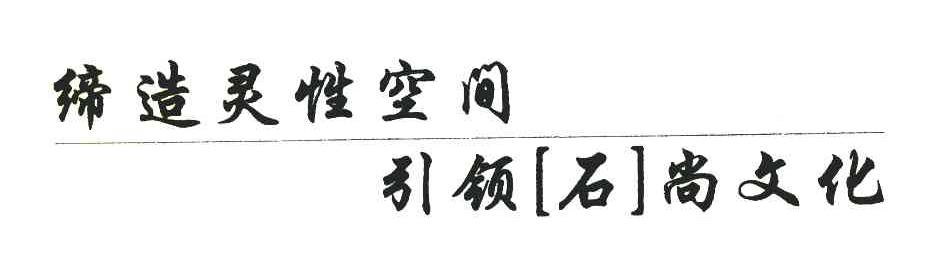 缔造灵性空间
引领[石]尚文化